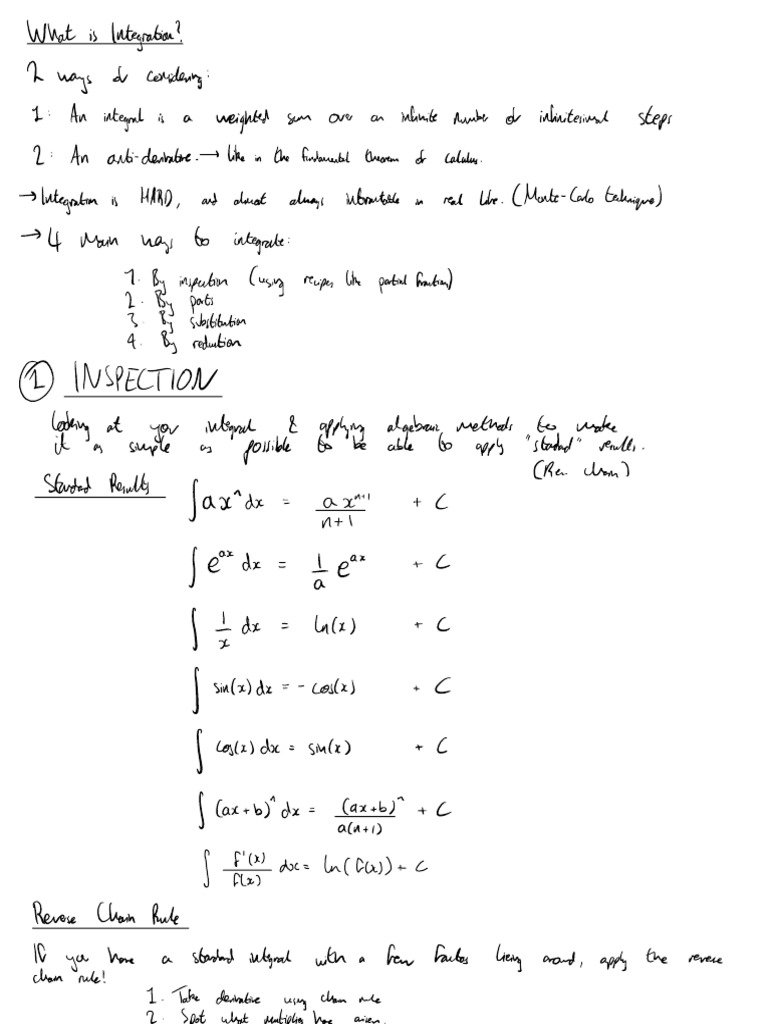 What is Integration?
2 ways of considering:
1: An integral is a weighted sum over an infinite number of infinitesimal steps
2: An anti-derivative. → Like in the fundamental theorem of calculus.
→ Integration is HARD, and almost always intractable in real life. (Monte-Carlo techniques)
→ 4 main ways to integrate:
1. By inspection (using recipes like partial fractions)
2. By parts
3. By substitution
4. By reduction
① INSPECTION
Looking at your integral & applying algebraic methods to make
it as simple as possible to be able to apply "standard" results.
(Rev. chain)
Standard Results ∫ax^n dx = ax^{n+1}/(n+1) + C
∫e^{ax} dx = 1/a e^{ax} + C
∫ 1/x dx = ln(x) + C
∫ sin(x) dx = - cos(x) + C
∫ cos(x) dx = sin(x) + C
∫ (ax+b)^n dx = (ax+b)^n/a(n+1) + C
∫ f'(x)/f(x) dx = ln(f(x)) + C
Reverse Chain Rule
If you have a standard integral with a few factors lying around, apply the reverse
chain rule!
1. Take derivative using chain rule
2. Spot what multiplier has arisen.